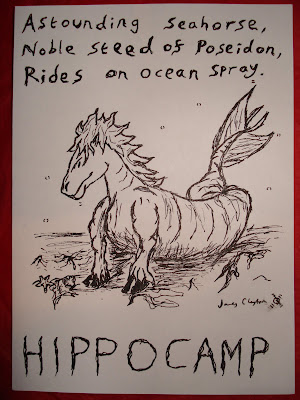 Astounding seahorse,
Noble steed of Poseidon,
Rides on ocean spray.
HIPPOCAMP